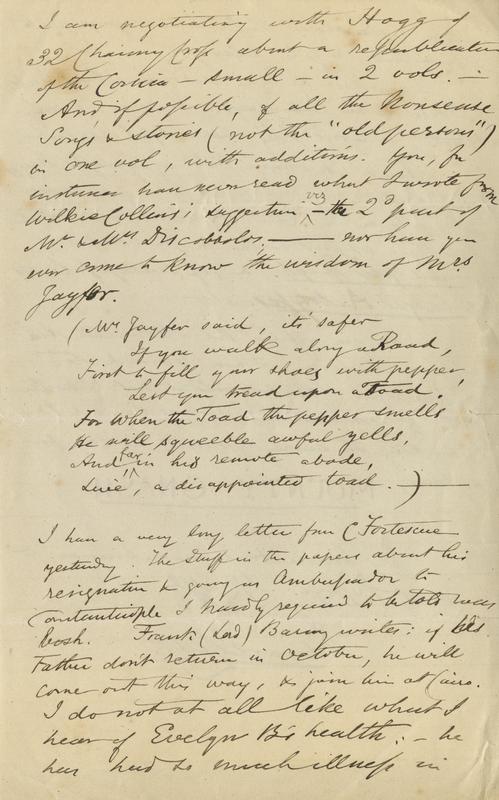 I am negotiating with Hogg of
32 Charing Cross about a republication
of the Corsica – small – in 2 vols. –
And if possible, of all the Nonsense
Songs & stories (not the "old persons")
in one vol, with additions. You, for
instance have never read what I wrote from
Wilkie Collins's suggestion viz – the 2d part of
Mr. & Mrs Discobbolos. — nor have you
ever come to know the wisdom of Mrs.
Jaypher.
(Mrs Jaypher said, its safer
If you walk along a Road,
First to fill your shoes with pepper,
Lest you tread upon a Toad.
For when the Toad the pepper smells
He will squeeble awful yells,
And far in his remote abode,
, a disappointed toad. ) —
I have a very long letter from C Fortescue
yesterday. The stuff in the papers about his
resignation & going as Ambassador to
Constantinople I hardly required to be told was
bosh. Frank (Lord) Baring writes: if his
Father don't return in October, he will
come out this way, & join him at Cairo.
I do not at all like what I
hear of Evelyn B's health: – he
has had so much illness in